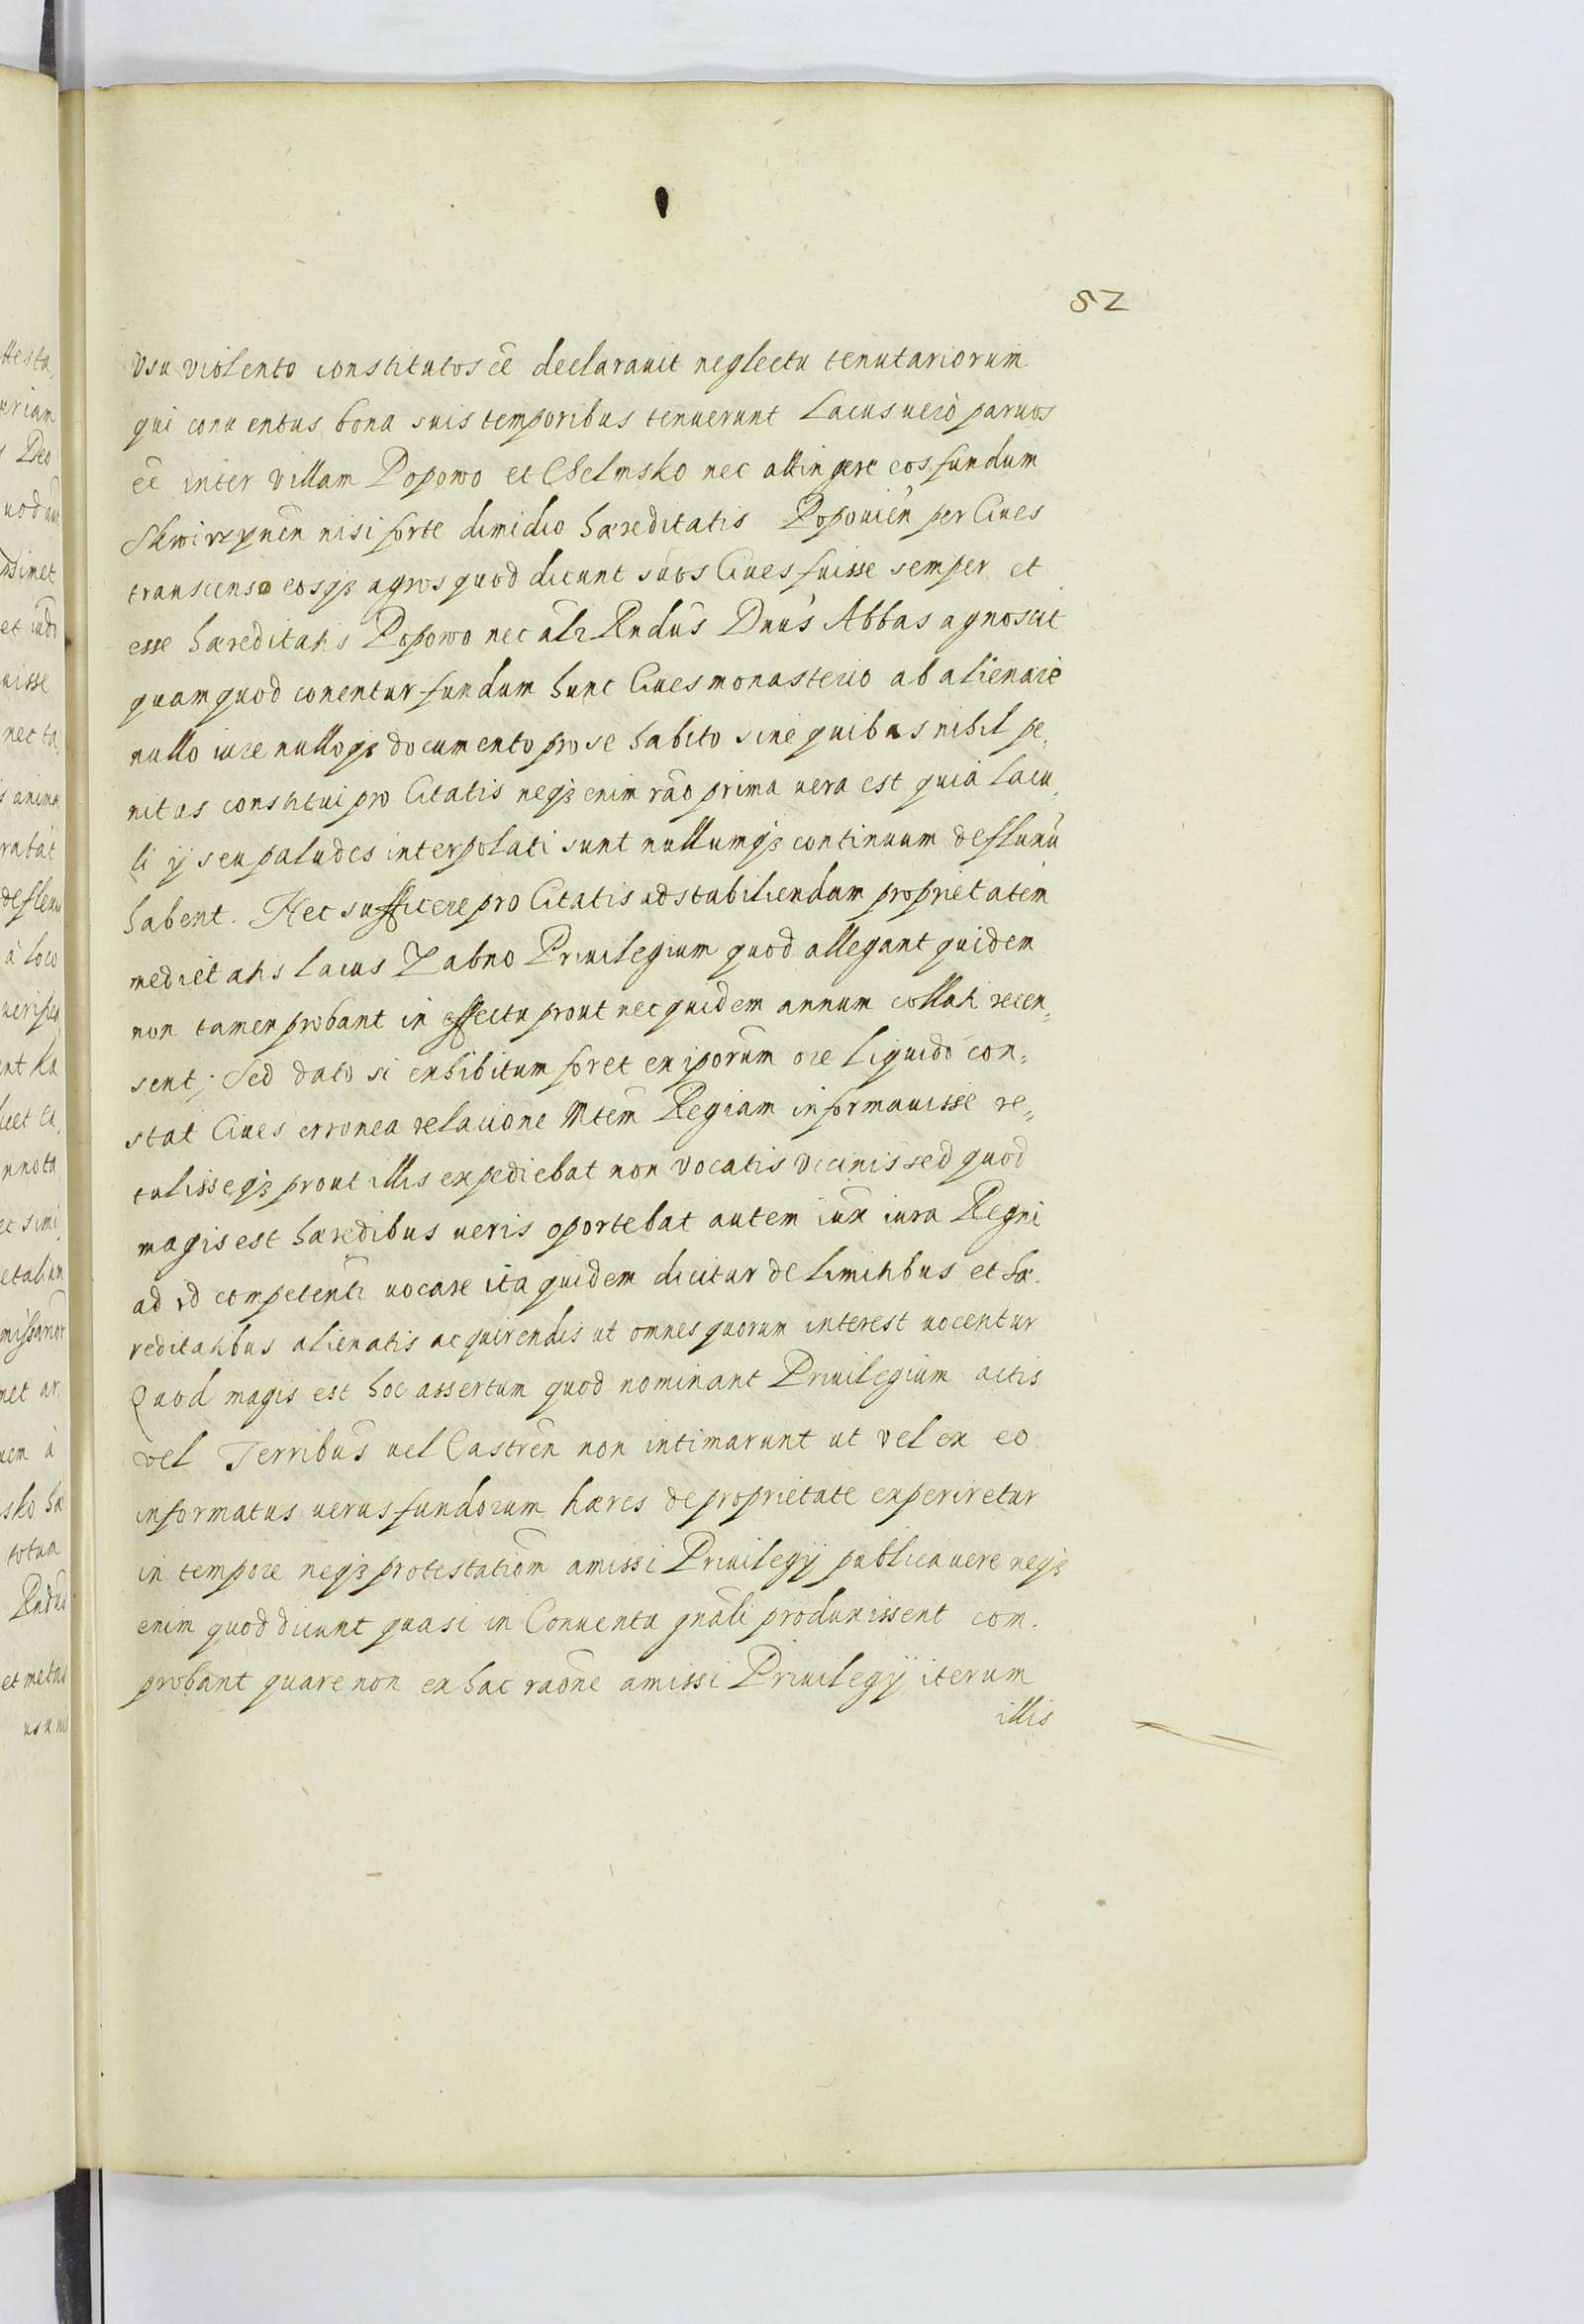 52
Vsu violento constitutos eē declarauit neglectu tenutariorum
qui conuentus bona suis temporibus tenuerunt Lacus uerò paruos
eē inter villam Popowo et Chelmsko nec attingere eos fundum
Skwirzynen̄ nisi forte dimidio hæreditatis Popouien̄ per Ciues
transcenso eosqʒ agros quod dicunt suos Ciues fuisse semper et
esse hæreditatis Popowo nec alr̄ Rndūs Dnūs Abbas agnoscit
quam quod conentur fundum hunc Ciues monasterio abalienare
nullo iure nulloqʒ documento pro se habito sine quibus nihil pe,
nitus constitui pro Citatis neqʒ enim rāo prima uera est quia Lacu,
li ÿ seu paludes interpolati sunt nullumqʒ continuum defluxū
habent. Nec sufficere pro Citatis ad stabiliendam proprietatem
medietatis lacus Zabno Priuilegium quod allegant quidem
non tamen probant in effectu prout nec quidem annum collati recen,
sent; Sed dato si exhibitum foret ex iporum̄ ore liquido con,
stat Ciues erronea relacione Mtem̄ Regiam informauisse re,
tulisseqʒ prout illis expediebat non vocatis vicinis sed quod
magis est hæredibus ueris oportebat autem iux̄ iura Regni
ad id competenti uocare ita quidem dicitur de limitibus et hæ.
reditatibus alienatis acquirendis ut omnes quorum interest uocentur
Quod magis est hoc assertum quod nominant Priuilegium actis
vel Terribus̄ uel Castren̄ non intimarunt ut vel ex eo
informatus uerus fundorum hæres de proprietate experiretur
in tempore neqʒ protestatiom̄ amissi Priuilegÿ publicauere neqʒ
enim quod dicunt quasi in Conuentu gnāli produxissent com.
probant quare non ex hac raōne amissi Priuilegÿ iterum
illis